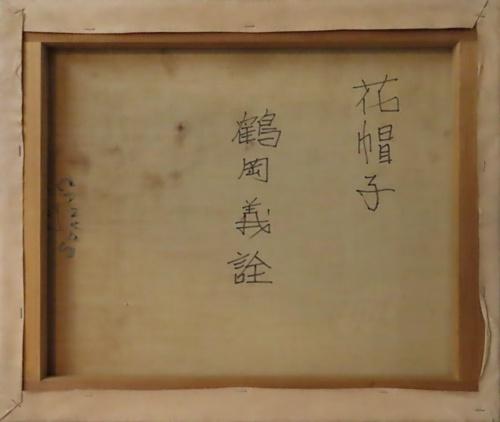 花帽子
鶴岡義詮